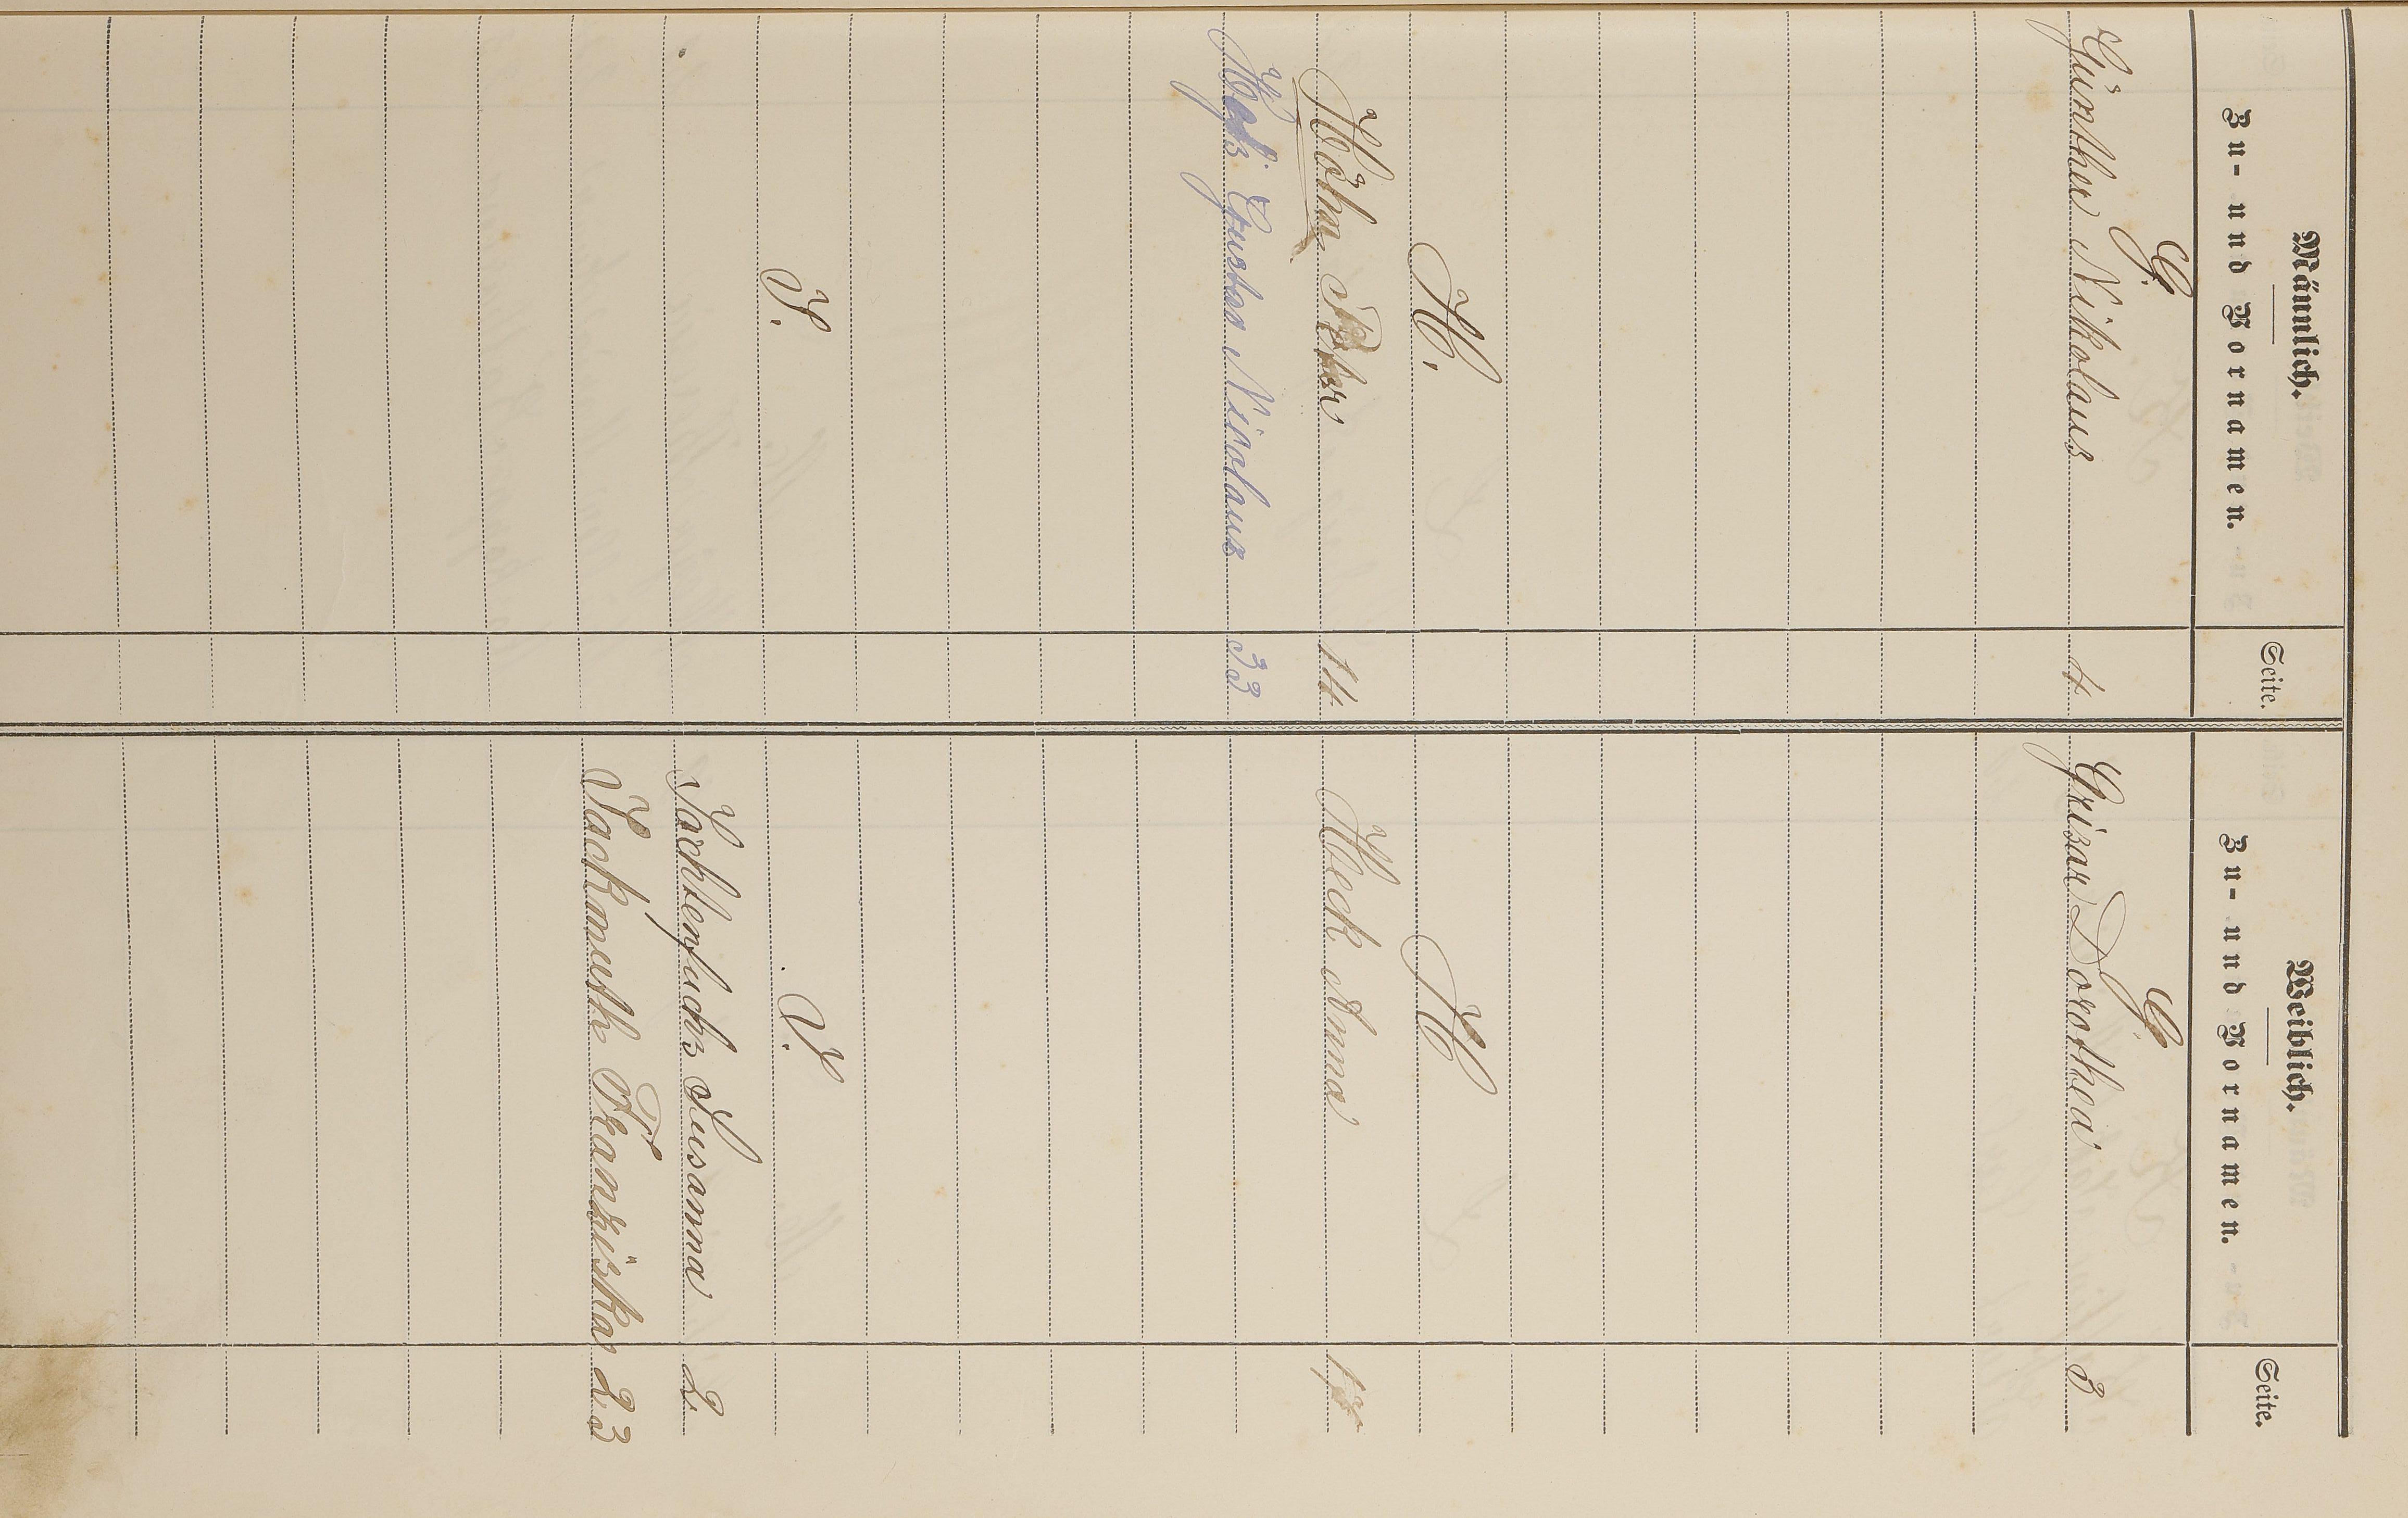 Männlich.
Zu- und Vornamen.
Seite.
G.
Günther Nikolaus 4.
H.
Höhn Peter 14.
Hefs Gustav Nicolaus 33
J.
Weiblich.
Zu- und Vornamen.
Seite.
G.
Grisar Dorothea 3
H
Heck Anna
J.
Jochtenfuchs Susanna 2.
Jackmuth Franziska 23